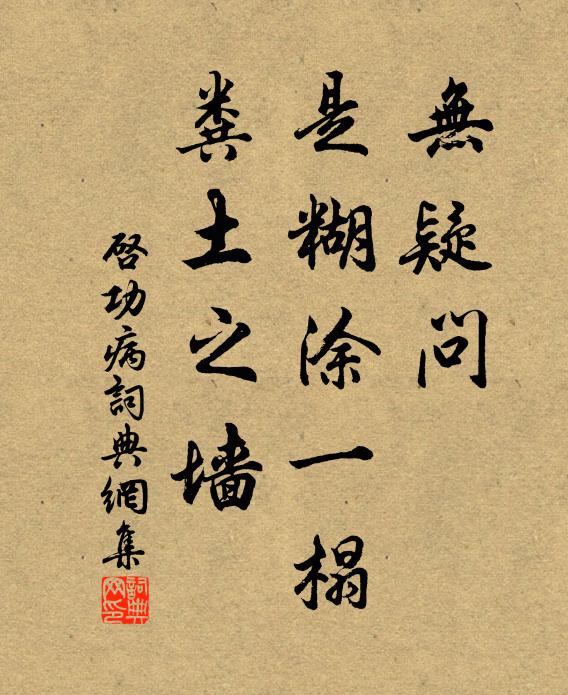 無疑問
是糊涂一榻
糞土之墙
啓功病詞典網集
詞典网印